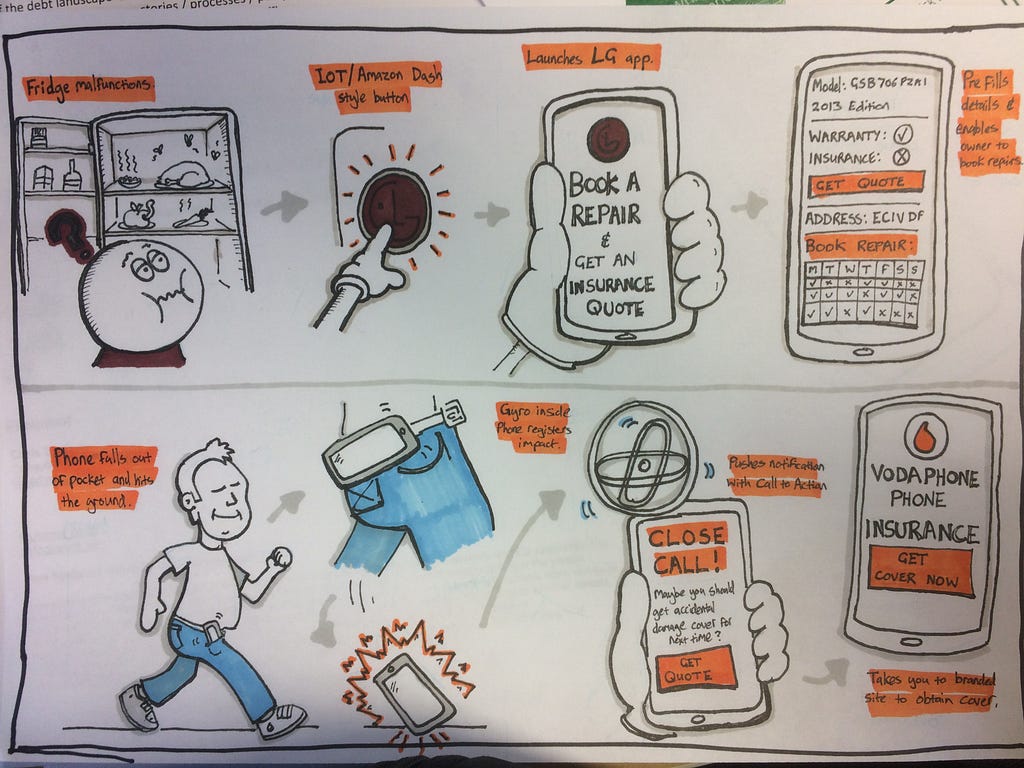 f the debt landscape
stories / processes / p
Fridge malfunctions.
IOT/Amazon Dash
style button
LG
Launches LG app.
BOOK A
REPAIR
&
GET AN
INSURANCE
QUOTE
Model: GSB706PZAI
2013 Edition
WARRANTY: ✓
INSURANCE: X
GET QUOTE
ADDRESS: ECIV DF
BOOK REPAIR:
M T W T F S S
Pre Fills
details &
enables
owner to
book repairs.
Phone falls out
of pocket and hits
the ground.
Gyro inside
Phone registers
impact.
Pushes notification
with Call to Action
CLOSE
CALL!
Maybe you should
get accidental
damage cover for
next time?
GET
QUOTE
VODAPHONE
PHONE
INSURANCE
GET
COVER NOW
Takes you to branded
site to obtain cover.